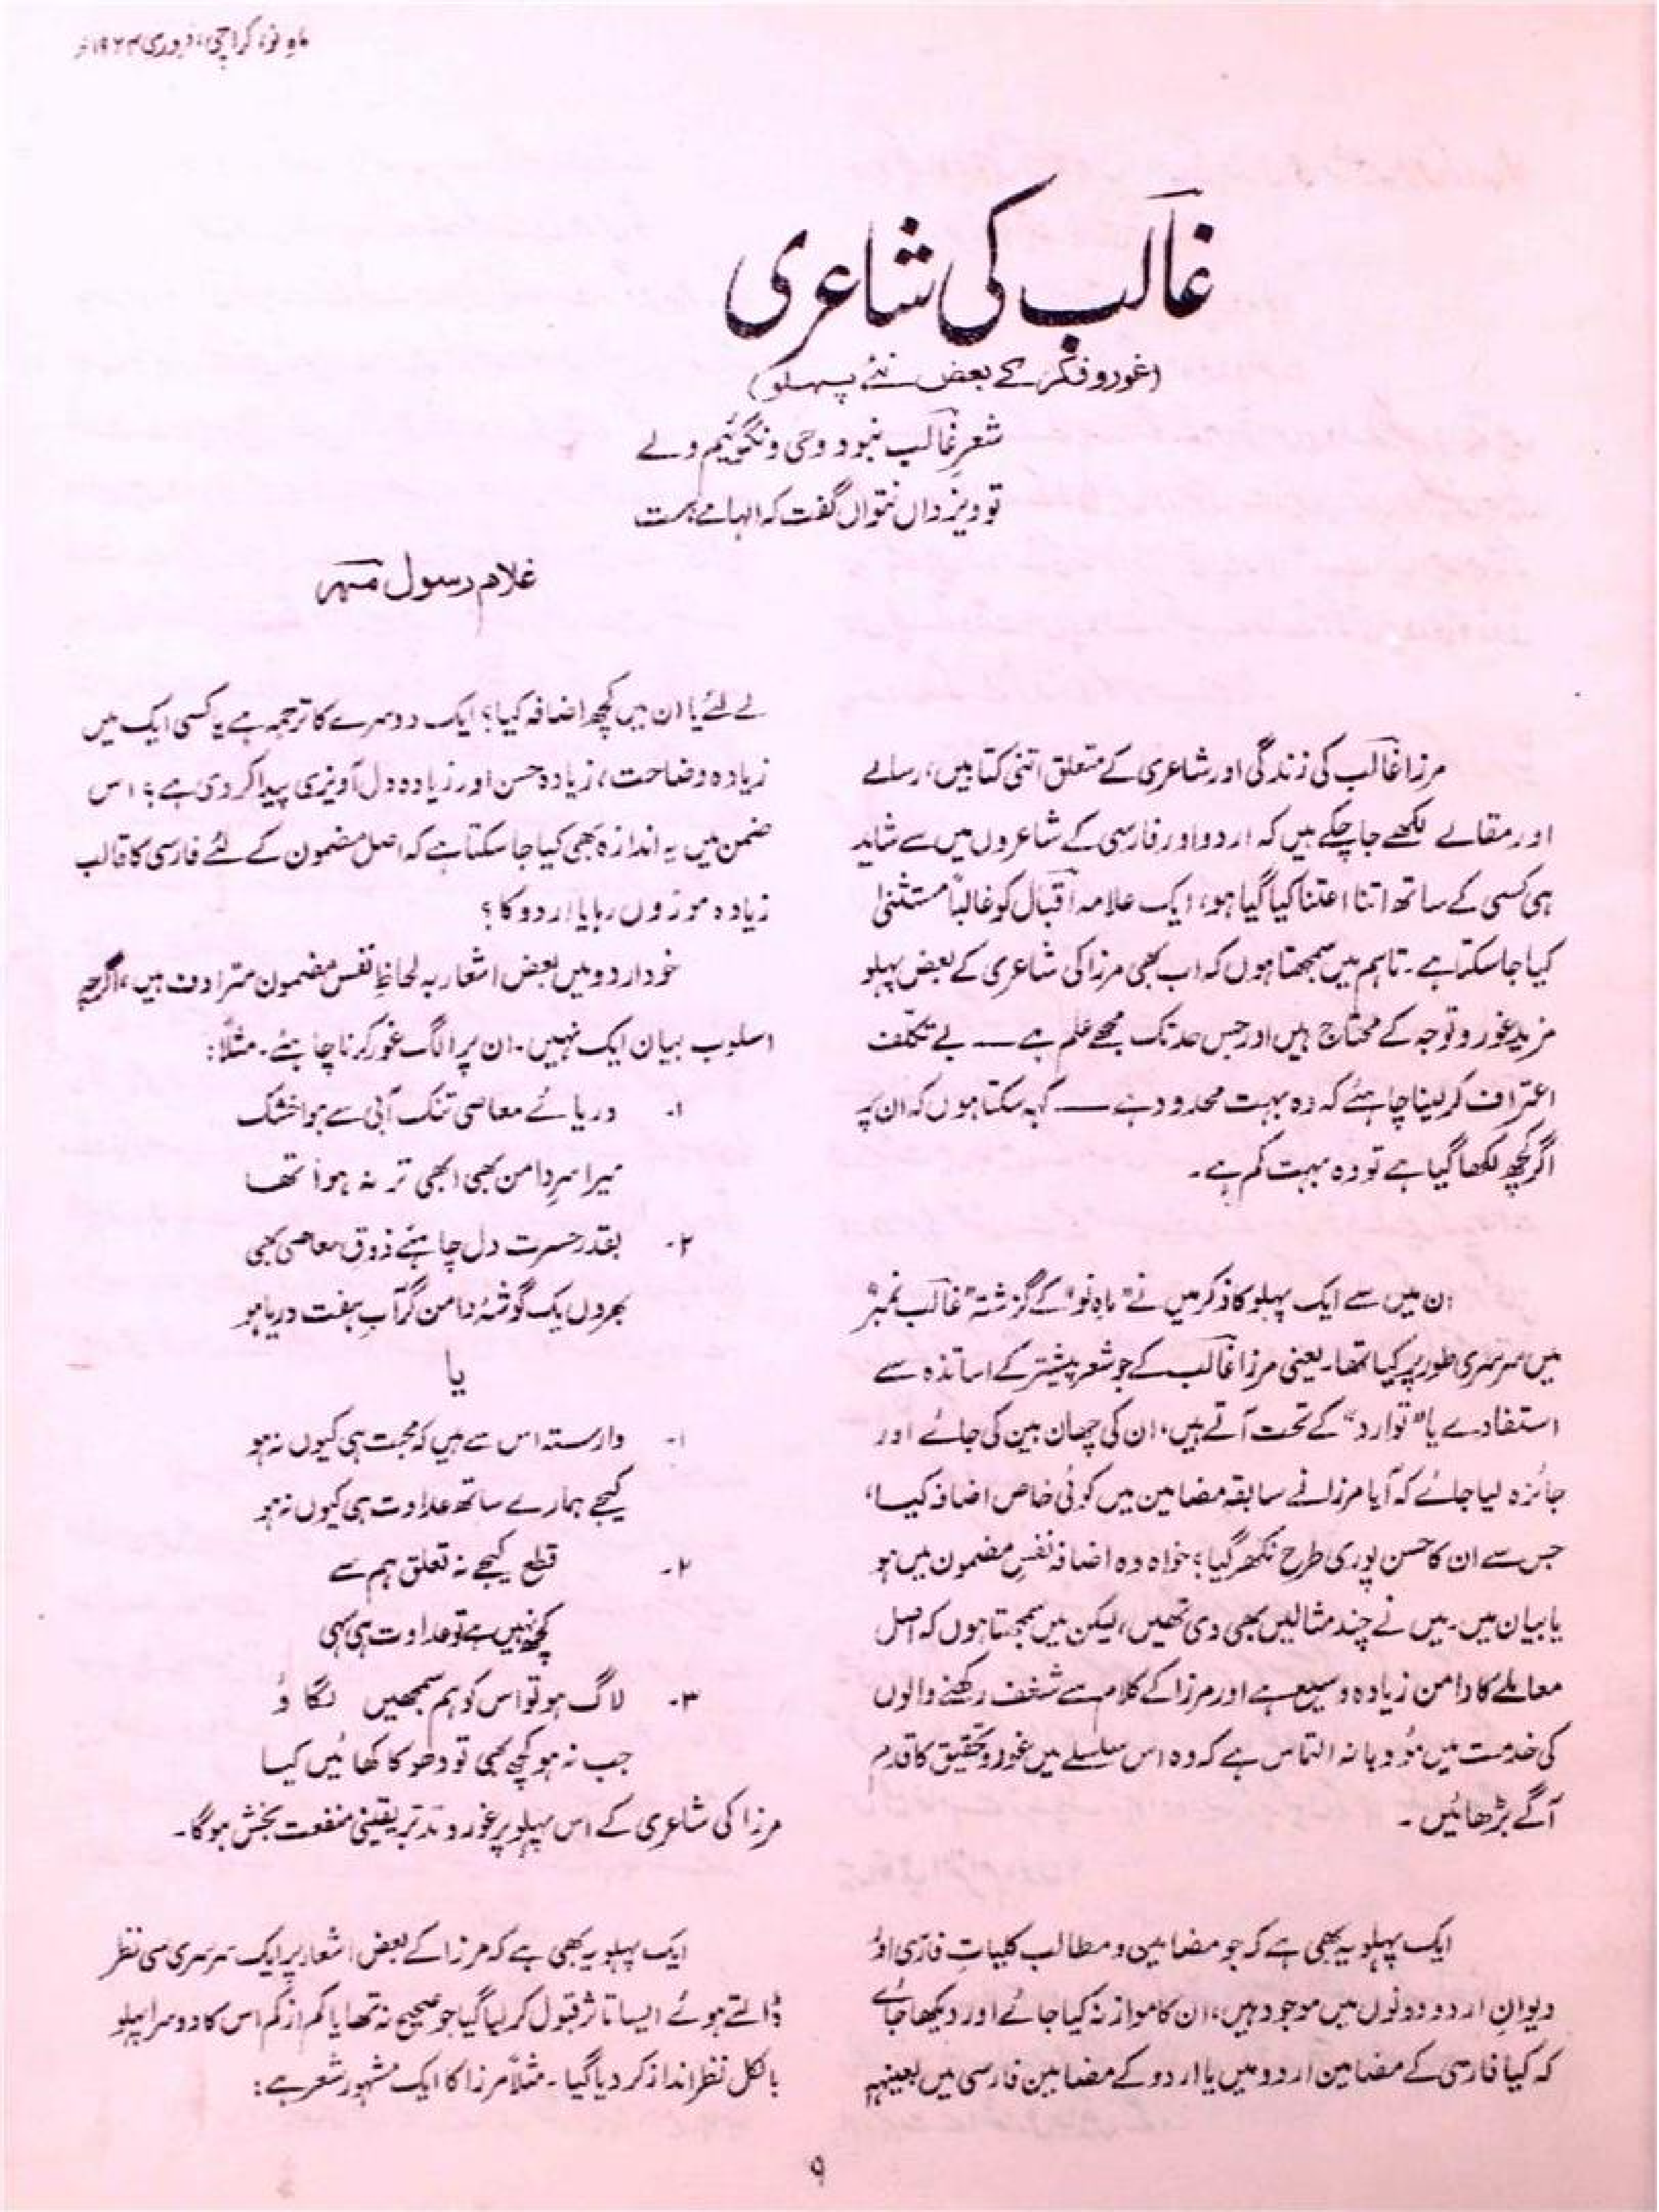 ماہِ نو، کراچی، فروری ۱۹۶۴ء
غالب کی شاعری
(غور و فکر کے بعض نئے پہلو)
شعرِ غالب نبود وحی و نگوئیم ولے
تو ویزداں نتواں گفت کہ الہامے ہست
غلام رسول مہر
مرزا غالب کی زندگی اور شاعری کے متعلق اتنی کتابیں، رسالے
اور مقالے لکھے جا چکے ہیں کہ اردو اور فارسی کے شاعروں میں سے شاید
ہی کسی کے ساتھ اتنا اعتنا کیا گیا ہو، ایک علامہ اقبال کو غالباً مستثنیٰ
کیا جا سکتا ہے۔ تاہم میں سمجھتا ہوں کہ اب بھی مرزا کی شاعری کے بعض پہلو
مزید غور و توجہ کے محتاج ہیں اور جس حد تک مجھے علم ہے — بے تکلف
اعتراف کر لینا چاہئے کہ وہ بہت محدود ہے — کہہ سکتا ہوں کہ ان پہ
اگر کچھ لکھا گیا ہے تو وہ بہت کم ہے۔
ان میں سے ایک پہلو کا ذکر میں نے "ماہِ نو" کے گزشتہ "غالب نمبر"
میں سرسری طور پر کیا تھا۔ یعنی مرزا غالب کے جو شعر پیشتر کے اساتذہ سے
استفادے یا "توارد" کے تحت آتے ہیں، ان کی چھان بین کی جائے اور
جائزہ لیا جائے کہ آیا مرزا نے سابقہ مضامین میں کوئی خاص اضافہ کیا،
جس سے ان کا حسن پوری طرح نکھر گیا؛ خواہ وہ اضافہ نفسِ مضمون میں ہو
یا بیان میں۔ میں نے چند مثالیں بھی دی تھیں، لیکن میں سمجھتا ہوں کہ اصل
معاملے کا دامن زیادہ وسیع ہے اور مرزا کے کلام سے شغف رکھنے والوں
کی خدمت میں مؤدبانہ التماس ہے کہ وہ اس سلسلے میں غور و تحقیق کا قدم
آگے بڑھائیں۔
ایک پہلو یہ بھی ہے کہ جو مضامین و مطالب کلیاتِ فارسی اور
دیوانِ اردو دونوں میں موجود ہیں، ان کا موازنہ کیا جائے اور دیکھا جائے
کہ کیا فارسی کے مضامین اردو میں یا اردو کے مضامین فارسی میں بعینہٖ
لے لئے یا ان میں کچھ اضافہ کیا؟ ایک دوسرے کا ترجمہ ہے یا کسی ایک میں
زیادہ وضاحت، زیادہ حسن اور زیادہ دل آویزی پیدا کر دی ہے؟ اس
ضمن میں یہ اندازہ بھی کیا جا سکتا ہے کہ اصل مضمون کے لئے فارسی کا قالب
زیادہ موزوں رہا یا اردو کا؟
خود اردو میں بعض اشعار بہ لحاظِ نفس مضمون مترادف ہیں، اگرچہ
اسلوب بیان ایک نہیں۔ ان پر الگ غور کرنا چاہئے۔ مثلاً:
۱۔ دریائے معاصی تنک آبی سے ہوا خشک
میرا سرِ دامن بھی ابھی تر نہ ہوا تھا
۲۔ بقدرِ حسرت دل چاہئے ذوق معاصی بھی
بھروں یک گوشۂ دامن گر آبِ ہفت دریا ہو
یا
۱۔ وارستہ اس سے ہیں کہ محبت ہی کیوں نہ ہو
کیجے ہمارے ساتھ عداوت ہی کیوں نہ ہو
۲۔ قطع کیجے نہ تعلق ہم سے
کچھ نہیں ہے تو عداوت ہی سہی
۳۔ لاگ ہو تو اس کو ہم سمجھیں لگاؤ
جب نہ ہو کچھ بھی تو دھوکا کھائیں کیا
مرزا کی شاعری کے اس پہلو پر غور و تدبر یقینی منفعت بخش ہوگا۔
ایک پہلو یہ بھی ہے کہ مرزا کے بعض اشعار پر ایک سرسری سی نظر
ڈالتے ہوئے ایسا تاثر قبول کر لیا گیا جو صحیح نہ تھا یا کم از کم اس کا دوسرا پہلو
بالکل نظر انداز کر دیا گیا۔ مثلاً مرزا کا ایک مشہور شعر ہے:
۹